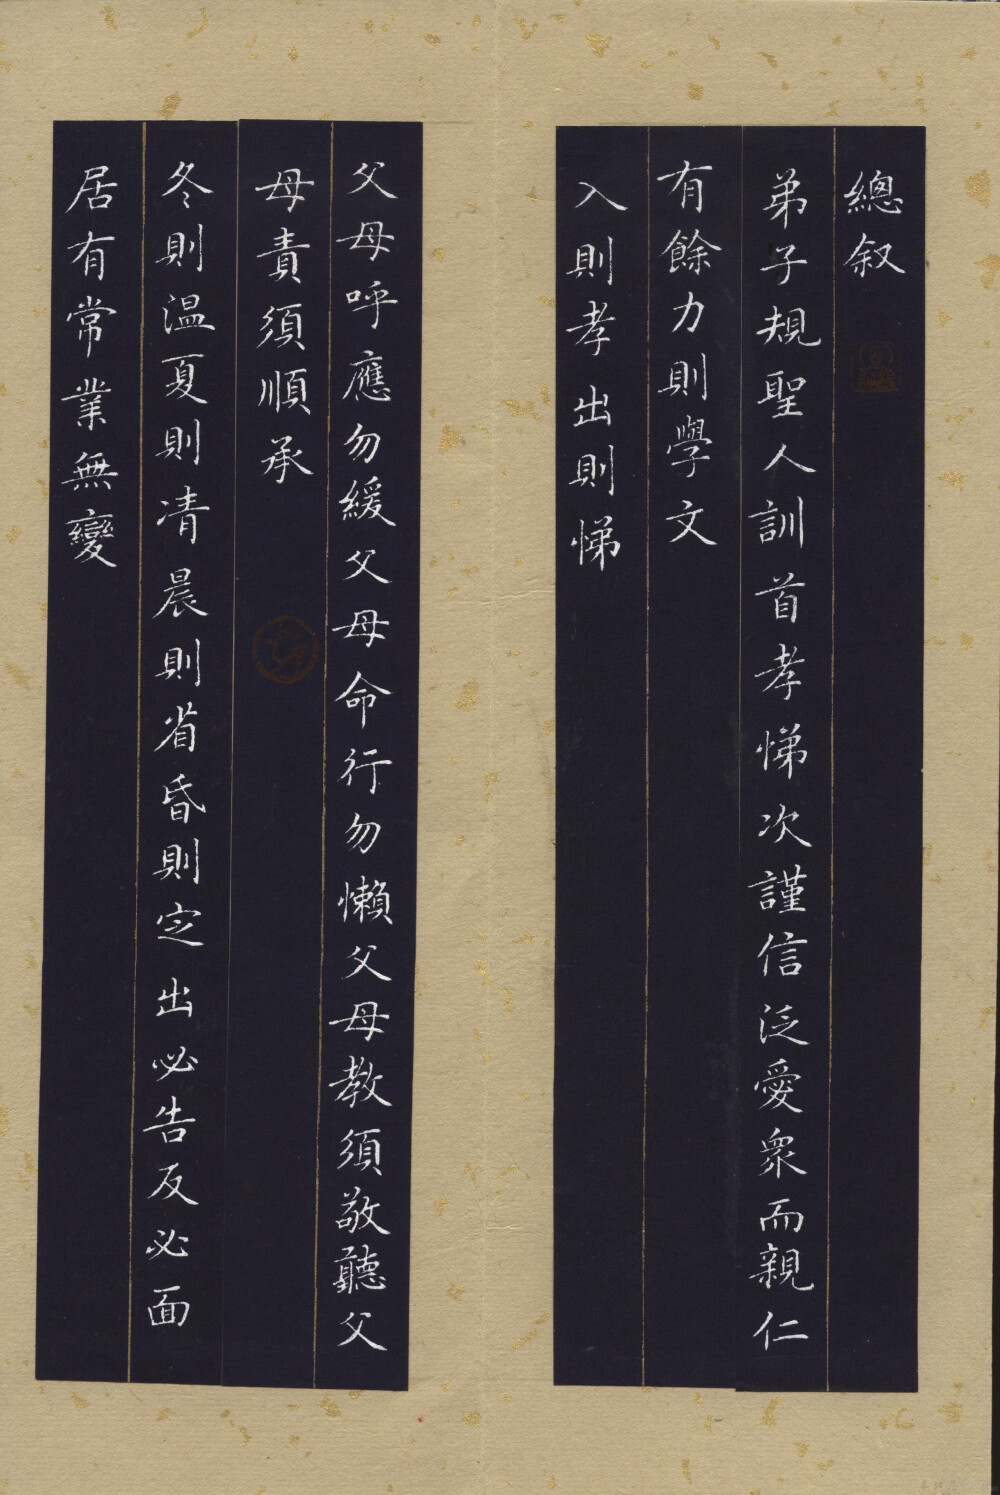 總叙
弟子規聖人訓首孝悌次謹信泛愛衆而親仁
有餘力則學文
入則孝出則悌
父母呼應勿緩父母命行勿懶父母教須敬聽父
母責須順承
冬則温夏則凊晨則省昏則定出必告反必面
居有常業無變